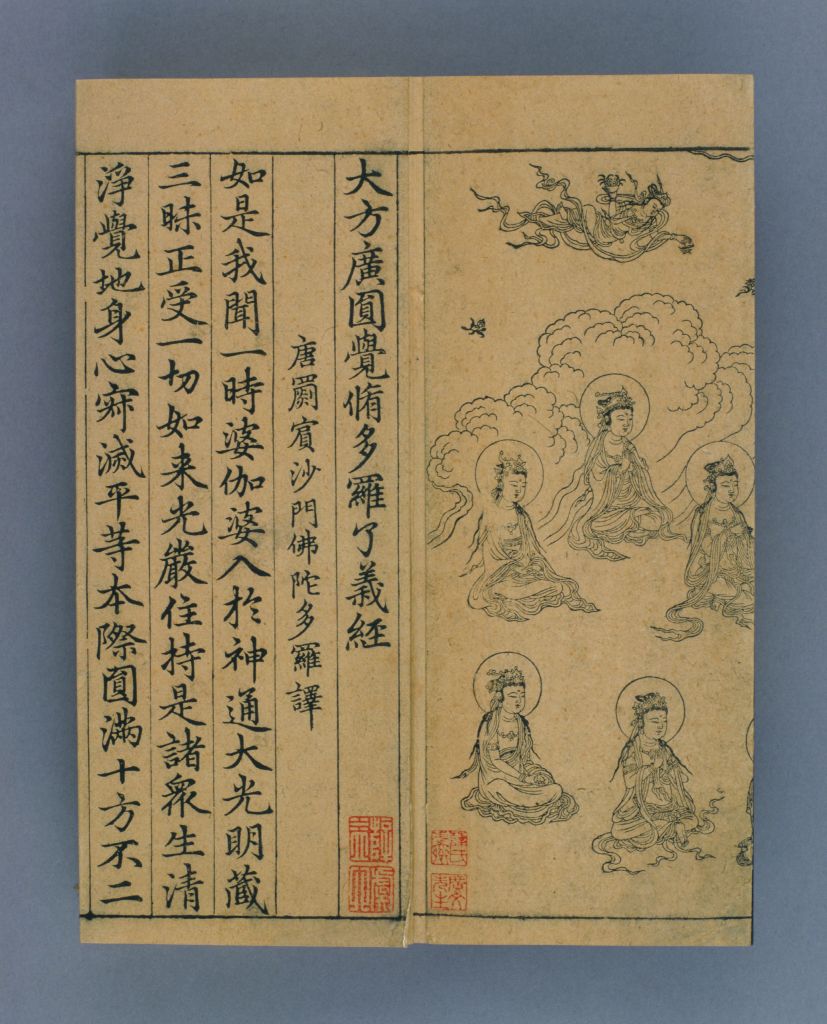 大方廣圎覺脩多羅了義經
唐罽賓沙門佛陀多羅譯
如是我聞一時婆伽婆入於神通大光明蔵
三昧正受一切如来光嚴住持是諸衆生清
淨覺地身心寂滅平等本際圎滿十方不二